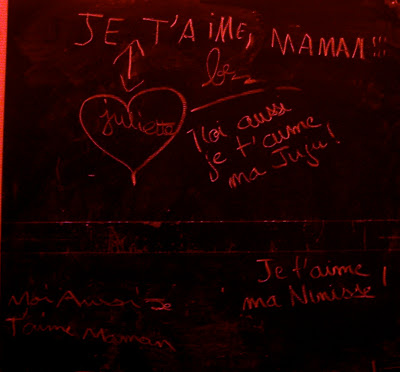 JE T'AIME, MAMAN!!!
juliette
Moi aussi
je t'aime
ma Juju!
Je t'aime !
ma Ninisse
Moi Aussi Je
T'aime Maman